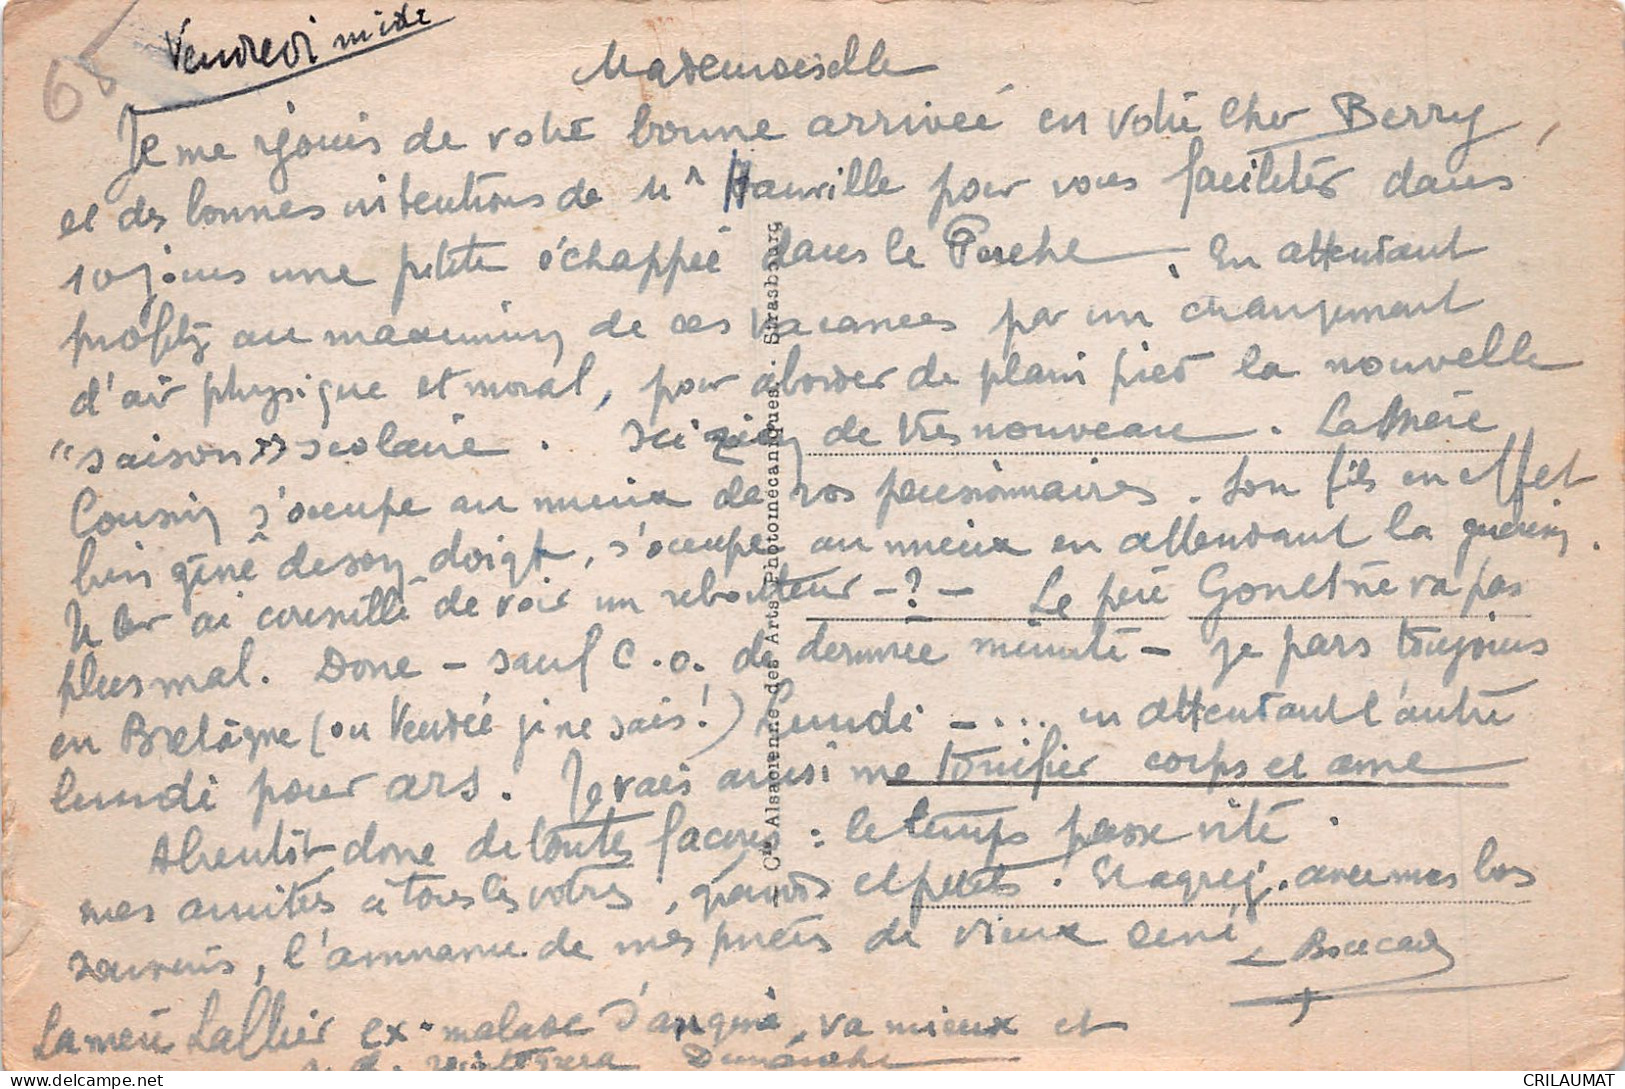 65
Vendredi midi
Mademoiselle
Je me réjouis de votre bonne arrivée en votre cher Berry,
et des bonnes intentions de Mr Hauville pour vous faciliter dans
10 jours une petite échappée dans le Perche. En attendant
profitez au maximum de ces vacances par un changement
d'air physique et moral, pour aborder de plain pied la nouvelle
"saison" scolaire. Ici rien de très nouveau. La Mère
Cousin s'occupe au mieux de vos pensionnaires. Son fils en effet
bien gêné de son doigt, s'occupe au mieux en attendant la guérison.
Je lui ai conseillé de voir un rebouteur - ? - Le père va pas
plus mal. Donc - sauf c.o. de dernière minute - je pars toujours
en Bretagne (ou Vendée je ne sais !) Lundi - ... en attendant l'autre
lundi pour Ars. Je vais ainsi me tonifier corps et âme
A bientôt donc de toutes façons : le temps passe vite.
mes amitiés à tous les votres, grands et petits. Et agréez, avec mes bons
souvenirs, l'assurance de mes prières de vieux curé
La mère Lallier ex-malade d'angine, va mieux et
Dimanche
Cie Alsacienne des Arts Photomécaniques. Strasbourg
CRILAUMAT